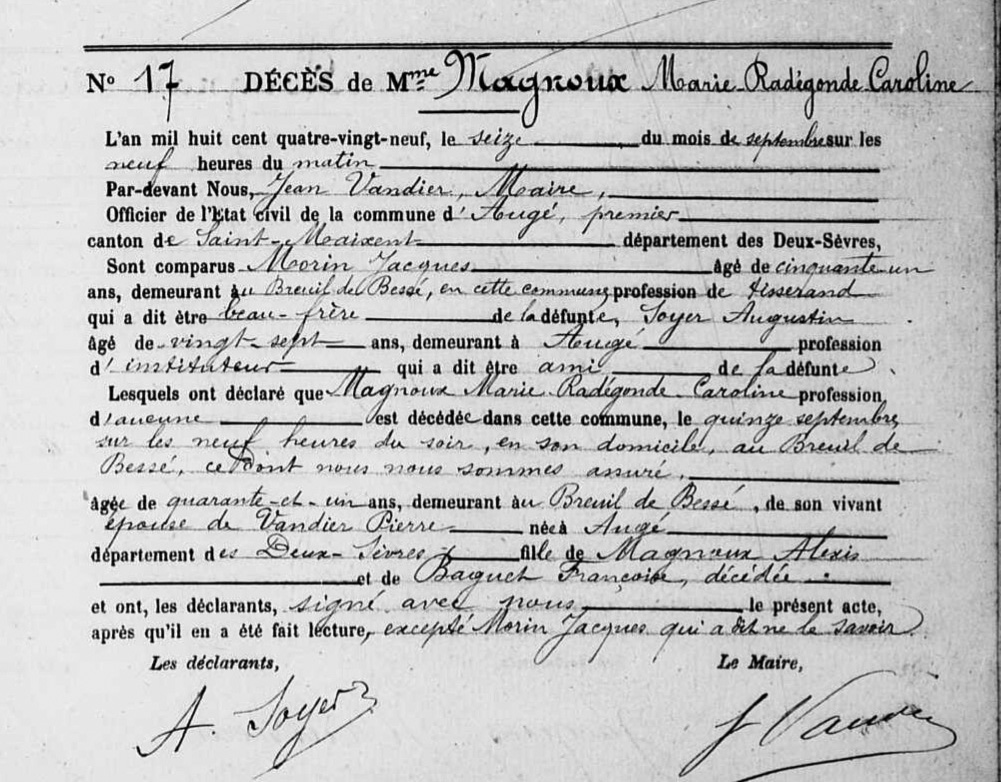 N° 17 DÉCÈS de Mme Magnoux Marie Radégonde Caroline
L'an mil huit cent quatre-vingt-neuf, le seize du mois de septembre sur les
neuf heures du matin
Par-devant Nous, Jean Vandier, Maire,
Officier de l'Etat civil de la commune d'Augé, premier
canton de Saint-Maixent département des Deux-Sèvres,
Sont comparus Morin Jacques âgé de cinquante un
ans, demeurant au Breuil de Bessé, en cette commune, profession de tisserand
qui a dit être beau-frère de la défunte, Soyer Augustin
âgé de vingt-sept ans, demeurant à Augé profession
d'instituteur qui a dit être ami de la défunte.
Lesquels ont déclaré que Magnoux Marie Radégonde Caroline profession
d'aucune est décédée dans cette commune, le quinze septembre
sur les neuf heures du soir, en son domicile, au Breuil de
Bessé, ce dont nous nous sommes assuré,
âgée de quarante-et-un ans, demeurant au Breuil de Bessé, de son vivant
épouse de Vandier Pierre née à Augé
département des Deux-Sèvres fille de Magnoux Alexis
et de Baguet Françoise, décédée
et ont, les déclarants, signé avec nous le présent acte,
après qu'il en a été fait lecture, excepté Morin Jacques qui a dit ne le savoir.
Les déclarants, Le Maire,
A. Soyer J Vandier